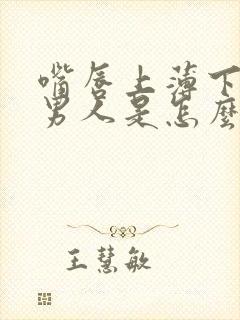 嘴唇上薄下
男人是怎麼
王慧敏